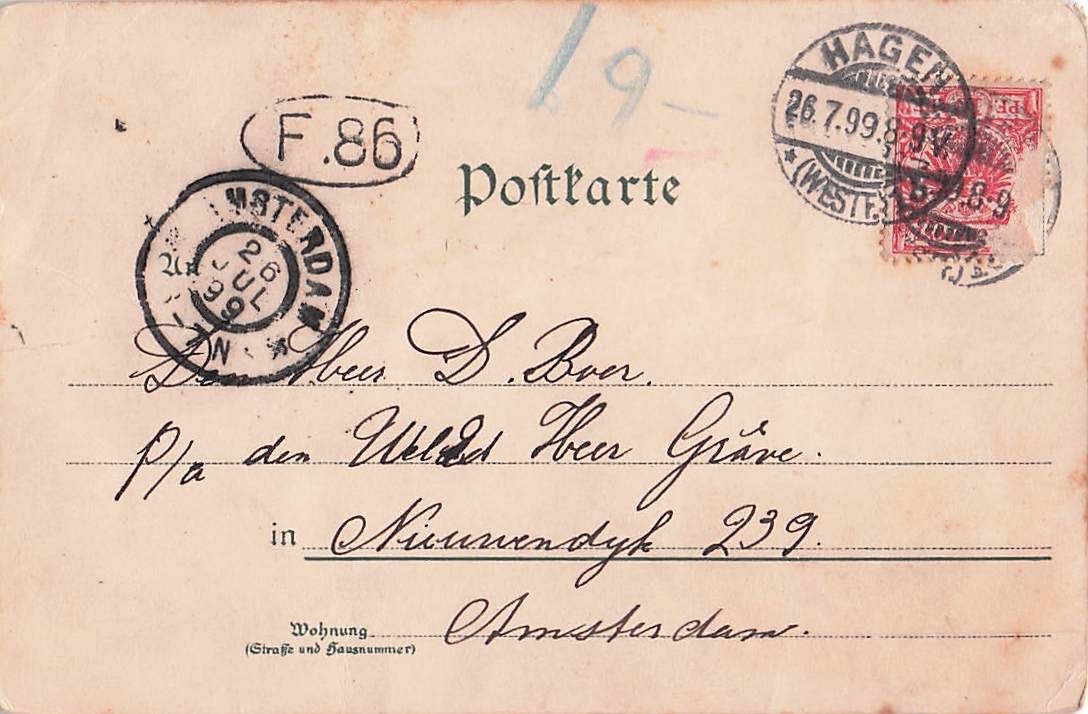 19-
HAGEN
26.7.99.8-9V
* (WESTF.)
8-9
F.86
Postkarte
AMSTERDAM
26
JUL
99
An
Den Heer D. Boer.
P/a den Heer Gräve.
in Nieuwendyk 239.
Wohnung Amsterdam.
(Straße und Hausnummer)